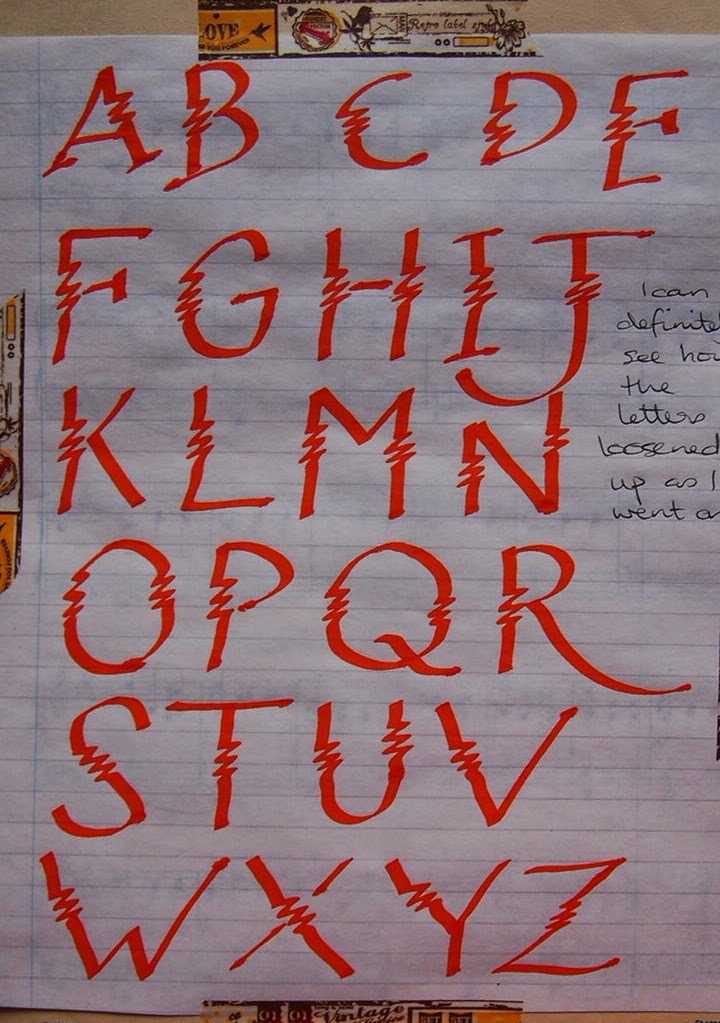 LOVE
YOU FOREVER
Retro label
A B C D E
F G H I J
I can
definite
see ho
the
letters
loosened
up as I
went o
K L M N
O P Q R
S T U V
W X Y Z
Vintage